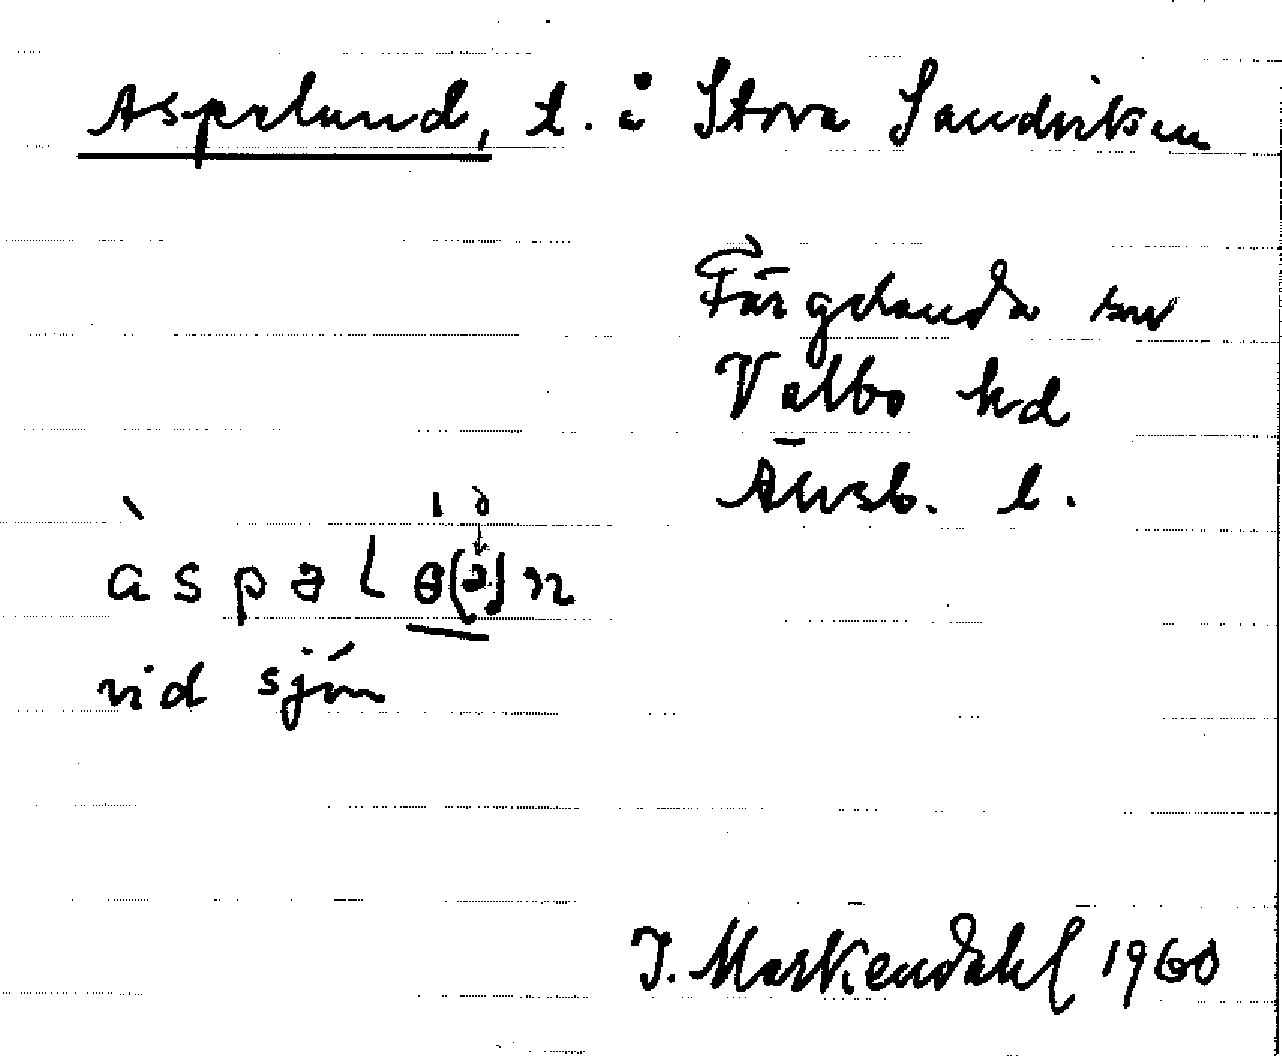 Aspelund, t. å Stora Sandviken
Färgelanda sn
Valbo hd
Älvsb. l.
àspəlɵ(ə)n
vid sjön
J. Markendahl 1960